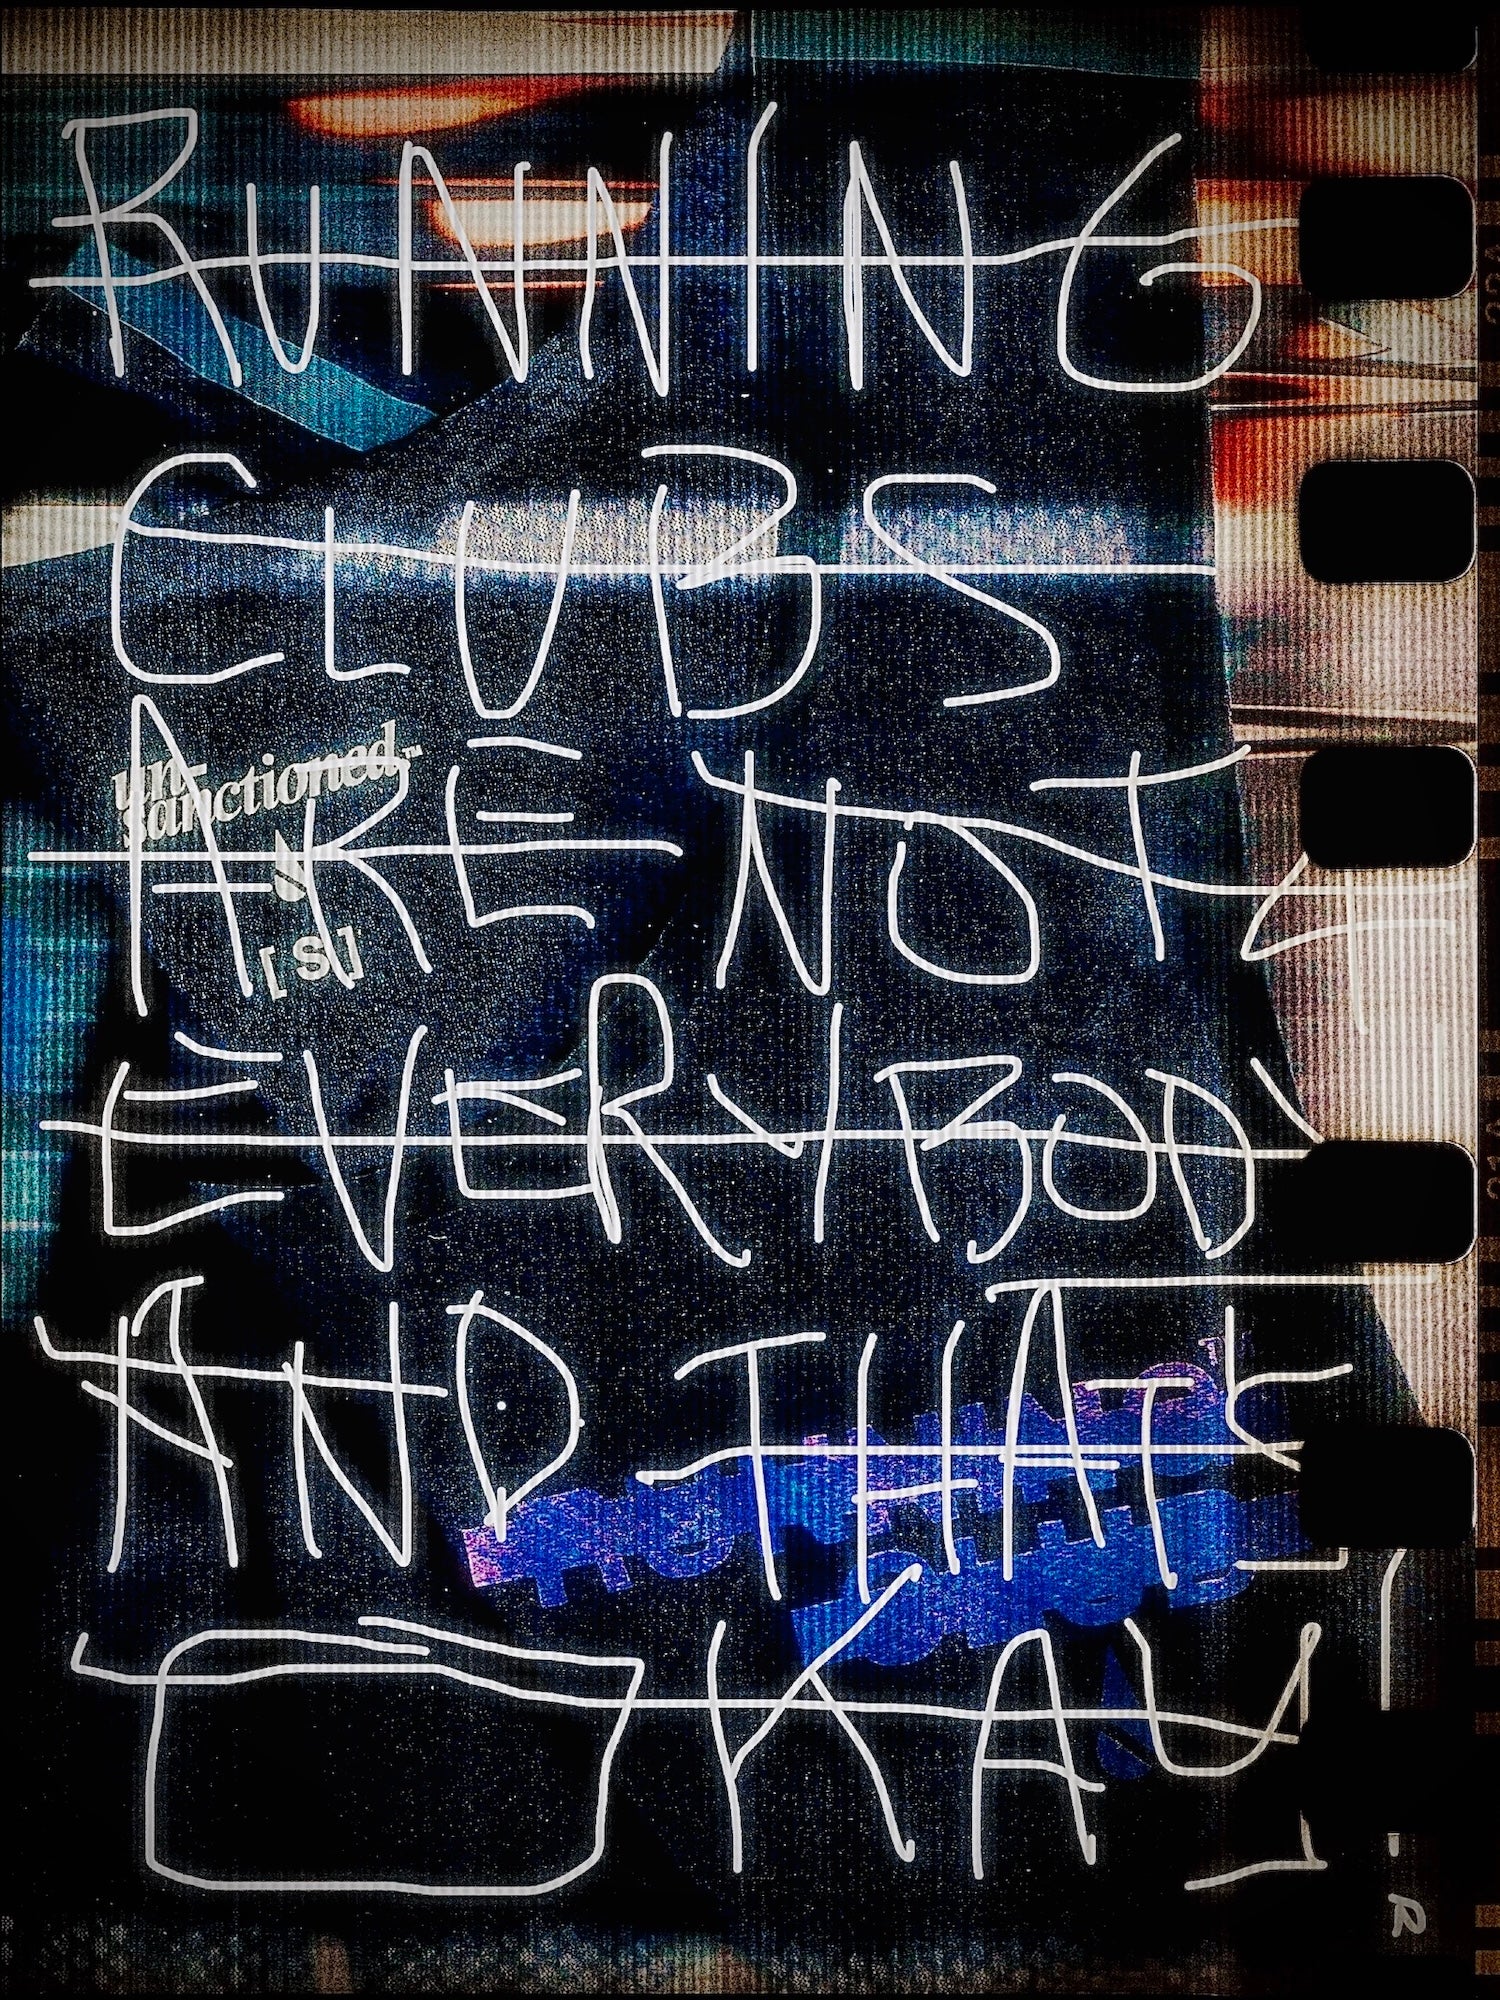 RUNNING
CLUBS
ARE NOT 4
un-
sanctioned™
[S]
EVERYBODY
AND THATS
OKAY!